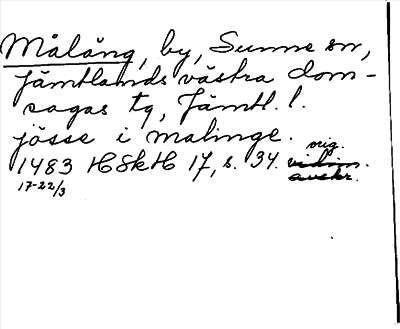 Målång, by, Sunne sn,
Jämtlands västra dom-
sagas tg, Jämtl. l.
jösse i malinge.
1483 HSkH 17, s. 34. orig.
17-22/3